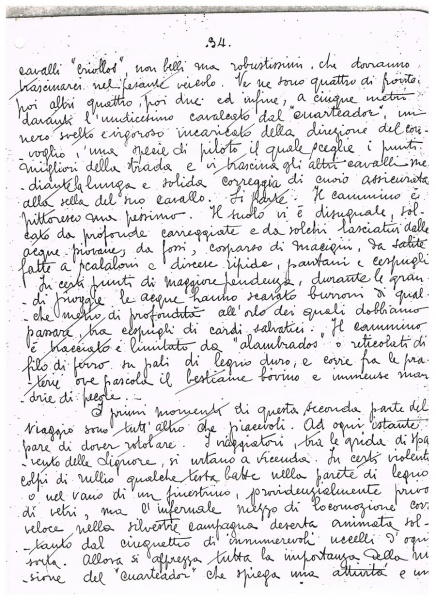 .34.
cavalli "criollos", non belli ma robustissimi che dovranno
trascinarci nel pesante veicolo. Ve ne sono quattro di fronte
poi altri quattro, poi due ed infine, a cinque metri
davanti l'undicesimo cavalcato dal "cuarteador", un
nero svelto e vigoroso incaricato della direzione del con-
voglio, una specie di pilota il quale sceglie i punti
migliori della strada e vi trascina gli altri cavalli me-
diante la lunga e solida correggia di cuoio assicurata
alla sella del suo cavallo. Si parte. Il cammino è
pittoresco ma pessimo. Il suolo vi è disuguale, sol-
cato da profonde carreggiate e da solchi lasciativi dalle
acque piovane, da fossi, cosparso di macigni, da salite
fatte a scalaloni e discese ripide, pantani e cespugli
In certi punti di maggiore pendenza, durante le gran-
di pioggie le acque hanno scavato burroni di qual-
che metro di profondità all'orlo dei quali dobbiamo
passare, tra cespugli di cardi selvatici. Il cammino
è tracciato e limitato da "alambrados" o reticolati di
filo di ferro su pali di legno duro, e corre fra le pra-
terie ove pascola il bestiame bovino e immense man
drie di pecore.
I primi momenti di questa seconda parte del
viaggio sono tutt'altro che piacevoli. Ad ogni istante
pare di dover rotolare. I viaggiatori, tra le grida di spa
vento delle Signore, si urtano a vicenda. In certi violenti
colpi di rullio qualche testa batte nella parete di legno
o nel vano di un finestrino, provvidenzialmente privo
di vetri, ma l'infernale mezzo di locomozione corre
veloce nella silvestre campagna deserta animata sol-
tanto dal cinguettio di innumerevoli uccelli d'ogni
sorta. Allora si apprezza tutta la importanza della mis
sione del "cuarteador" che spiega una attività e un